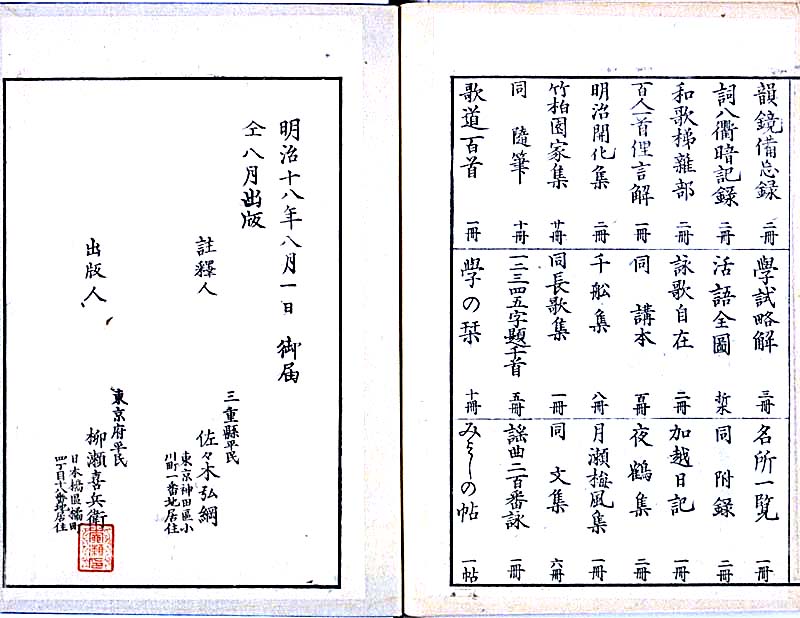 韻鏡備忘録 二冊
詞八衢暗記録 二冊
和歌梯雜部 二冊
百人一首俚言解 一冊
明治開化集 二冊
竹柏園家集 廿冊
同 隨筆 十冊
歌道百首 一冊
學試略解 三冊
活語全圖
詠歌自在 二冊
同 講本 百冊
千船集 八冊
同長歌集 一冊
一二三四五字題千首 五冊
學の栞 十冊
名所一覧 一冊
同 附録 二冊
加越日記 一冊
夜鶴集 二冊
月瀬梅風集 一冊
同 文集 六冊
謡曲二百番詠 一冊
みよしの帖 一帖
明治十八年八月一日 御届
仝 八月出版
註釋人
三重縣平民
佐々木弘綱
東京神田區小
川町一番地居住
出版人
東京府平民
柳瀬喜兵衛
日本橋區橘町
四丁目十八番地居住